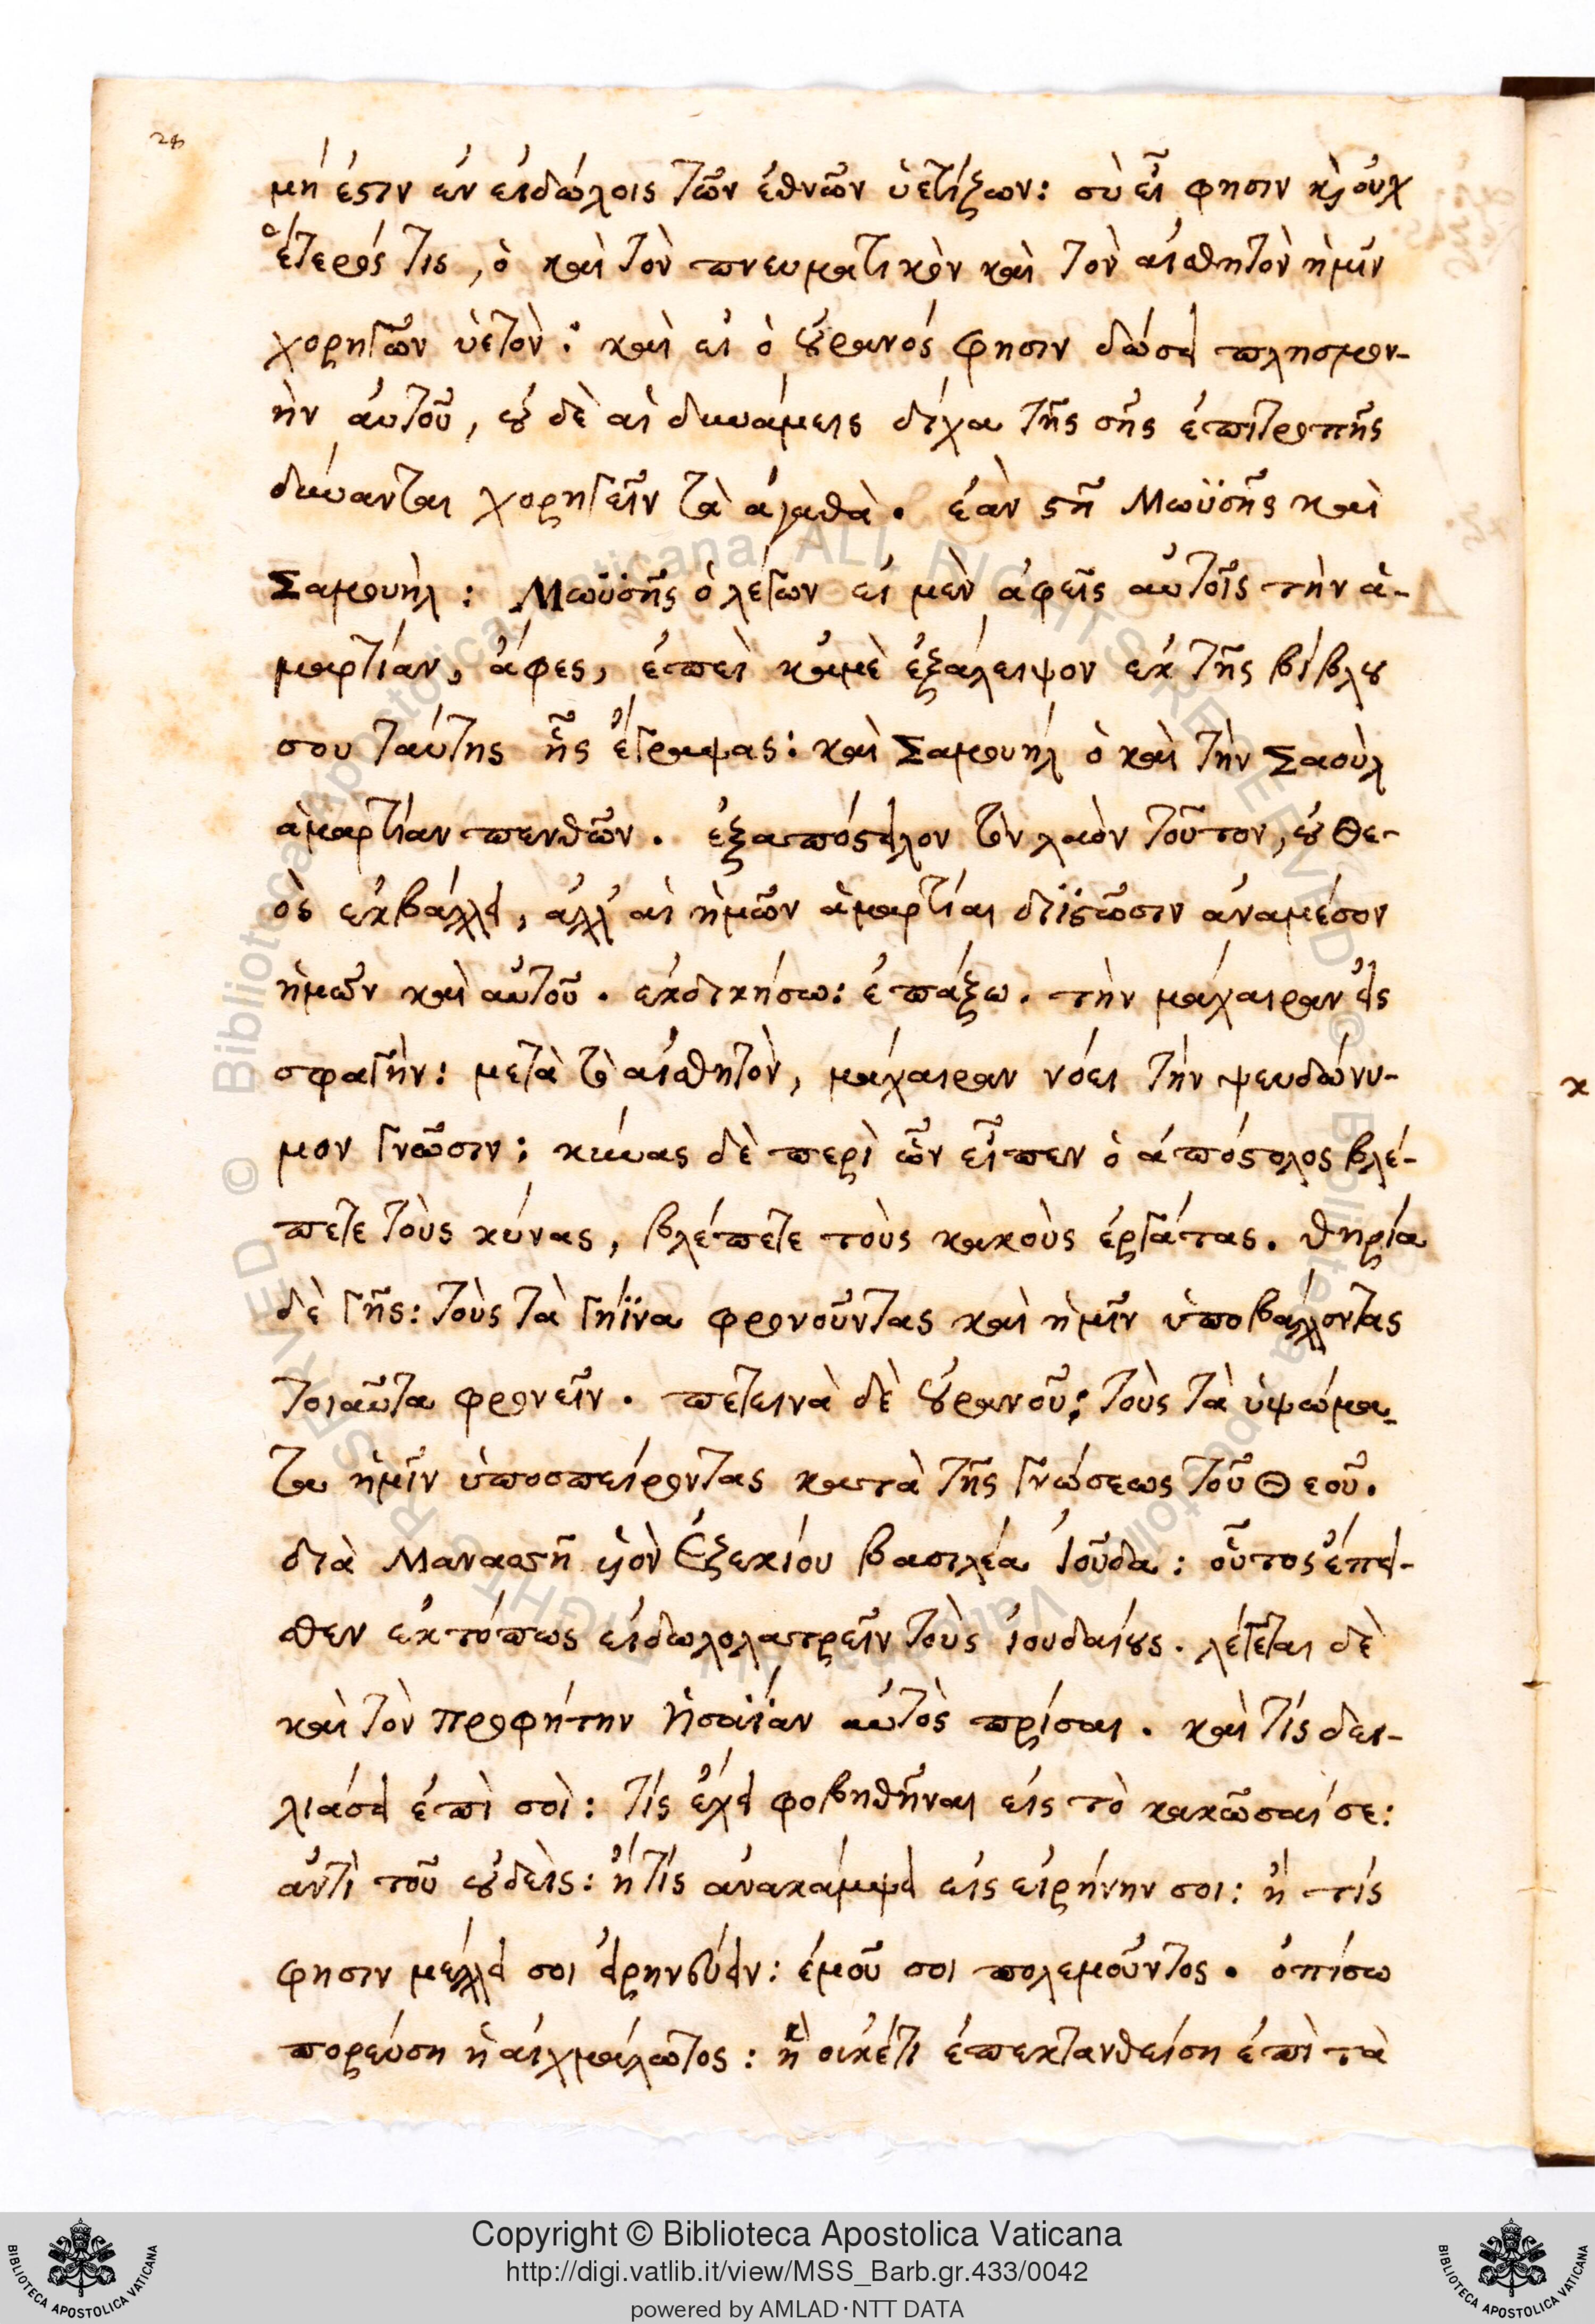 28
μή ἐστιν ἐν εἰδώλοις τῶν ἐθνῶν ὑετίζων: σὺ εἶ φησιν κ οὐχ
ἕτερός τις, ὁ καὶ τὸν πνευματικὸν καὶ τὸν αἰσθητὸν ἡμῖν
χορηγῶν ὑετὸν: καὶ εἰ ὁ οὐρανός φησιν δώσει πλησμον-
ὴν αὐτοῦ, οὐ δὲ αἱ δυνάμεις δίχα τῆς σῆς ἐπιτροπῆς
δύνανται χορηγεῖν τὰ ἀγαθὰ. ἐὰν στῆ Μωϋσῆς καὶ
Σαμουὴλ: Μωϋσῆς ὁ λέγων εἰ μὲν ἀφεῖς αὐτοῖς τὴν ἁ-
μαρτίαν, ἄφες, ἐπεὶ κἀμὲ ἐξάλειψον ἐκ τῆς βίβλου
σου ταύτης ἧς ἔγραψας: καὶ Σαμουήλ ὁ καὶ τὴν Σαοὺλ
ἁμαρτίαν πενθῶν. ἐξαπόστειλον τὸν λαὸν τοῦτον, οὐ Θε-
ὸς ἐκβάλλει, ἀλλ' αἱ ἡμῶν ἁμαρτίαι διϊστῶσιν ἀναμέσον
ἡμῶν καὶ αὐτοῦ. ἐκδικήσω: ἐπάξω. τὴν μάχαιραν εἰς
σφαγὴν: μετὰ τὸ αἰσθητὸν, μάχαιραν νόει τὴν ψευδώνυ-
μον γνῶσιν: κύνας δὲ περὶ ὧν εἶπεν ὁ ἀπόστολος βλέ-
πετε τοὺς κύνας, βλέπετε τοὺς κακοὺς ἐργάτας. θηρία
δὲ γῆς: τοὺς τὰ γήϊνα φρονοῦντας καὶ ἡμῖν ὑποβάλλοντας
τοιαῦτα φρονεῖν. πετεινὰ δὲ οὐρανοῦ: τοὺς τὰ ὑψώμα-
τα ἡμῖν ὑποσπείροντας κατὰ τῆς γνώσεως τοῦ Θεοῦ.
διὰ Μανασσῆ υἱὸν Ἐξεκίου βασιλέα Ἰοῦδα: οὗτος ἔπει-
θεν ἐκτόπως εἰδωλολατρεῖν τοὺς ἰουδαίους. λέγεται δὲ
καὶ τὸν προφήτην Ἡσαΐαν αὐτὸς πρίσαι. καὶ τίς δει-
λιάσει ἐπὶ σοὶ: τίς ἔχει φοβηθῆναι εἰς τὸ κακῶσαί σε:
ἀντὶ τοῦ οὐδεὶς: ἢ τίς ἀνακάμψει εἰς εἰρήνην σοι: ἢ τίς
φησιν μέλλει σοι εἰρηνεύειν: ἐμοῦ σοι πολεμοῦντος. ὀπίσω
πορεύση ἢ αἰχμάλωτος: ἢ οὐκέτι ἐπεκτανθείση ἐπὶ τὰ
Copyright © Biblioteca Apostolica Vaticana
http://digi.vatlib.it/view/MSS_Barb.gr.433/0042
powered by AMLAD·NTT DATA